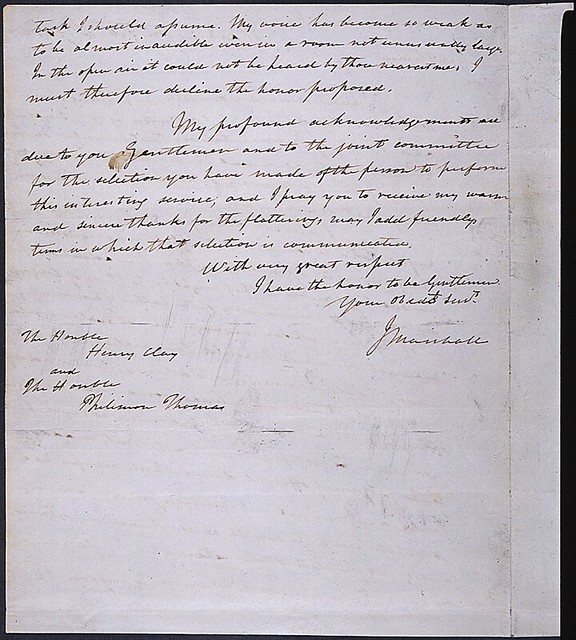 task I should assume. My voice has become so weak as
to be almost inaudible even in a room not unusually large.
In the open air it could not be heard by those nearest me. I
must therefore decline the honor proposed.
My profound acknowledgements are
due to you Gentlemen and to the joint committee
for the selection you have made of the person to perform
this interesting service, and I pray you to receive my warm
and sincere thanks for the flattering, may I add friendly,
terms in which that selection is communicated.
With very great respect
I have the honor to be Gentlemen
Your Obedt. Servt.
J Marshall
The Honble
Henry Clay
and
The Honble
Philimon Thomas